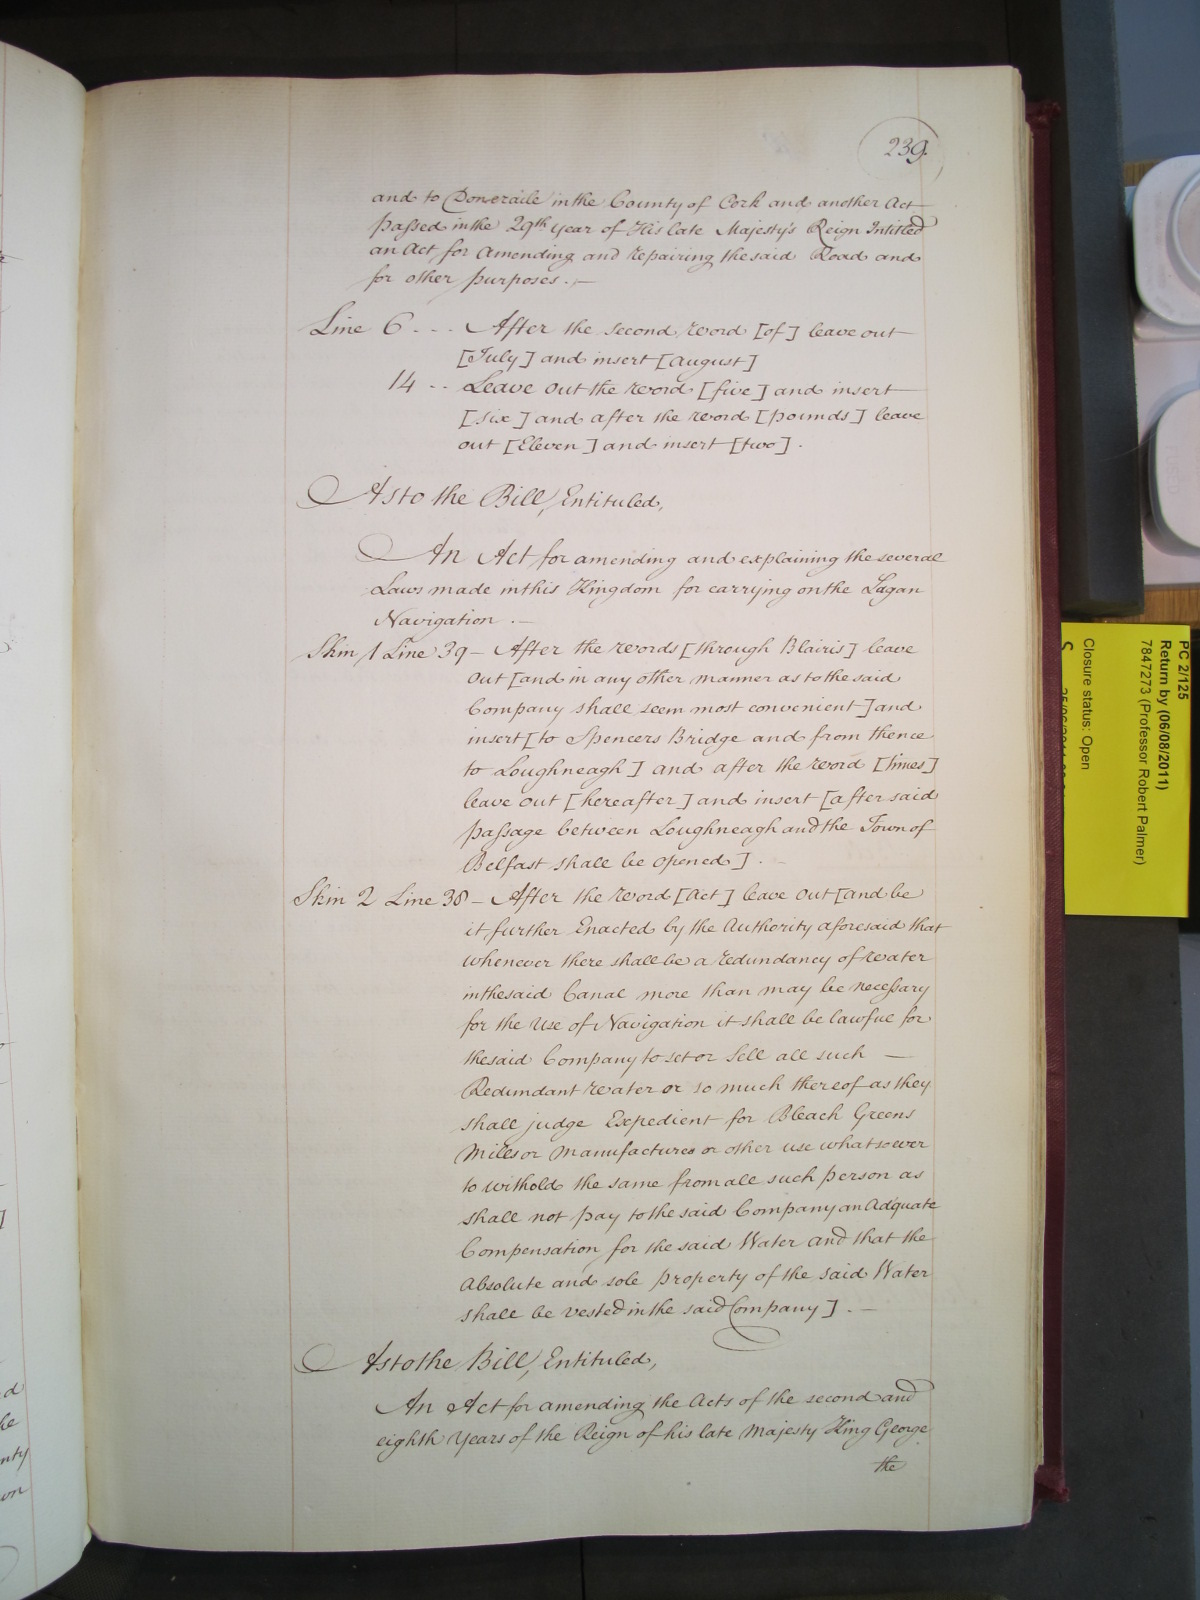 239.
and to Doneraile in the County of Cork and another Act
passed in the 29th year of His late Majesty's Reign Intitled
an Act for Amending and repairing the said Road and
for other purposes. —
Line 6 . - - After the second word [of] leave out
[July] and insert [August]
14 - - Leave out the word [five] and insert
[six] and after the word [pounds] leave
out [Eleven] and insert [two].
As to the Bill, Entituled,
An Act for amending and explaining the several
Laws made in this Kingdom for carrying on the Lagan
Navigation. —
Skin 1 Line 39 - After the words [through Blairis] leave
out [and in any other manner as to the said
Company shall seem most convenient] and
insert [to Spencers Bridge and from thence
to Loughneagh] and after the word [times]
leave out [hereafter] and insert [after said
passage between Loughneagh and the Town of
Belfast shall be opened]. -
Skin 2 Line 38 - After the word [Act] leave out [and be
it further Enacted by the Authority aforesaid that
whenever there shall be a redundancy of water
in the said Canal more than may be necessary
for the use of Navigation it shall be lawful for
the said Company to set or Sell all such —
Redundant water or so much thereof as they
shall judge Expedient for Bleach Greens
Mills or Manufactures or other use whatsoever
to withold the same from all such person as
shall not pay to the said Company an Adquate
Compensation for the said Water and that the
Absolute and sole property of the said Water
shall be vested in the said Company]. —
As to the Bill, Entituled,
An Act for amending the Acts of the second and
eighth Years of the Reign of his late Majesty King George
the
PC 2/125
Return by (06/08/2011)
7847273 (Professor Robert Palmer)
Closure status: Open